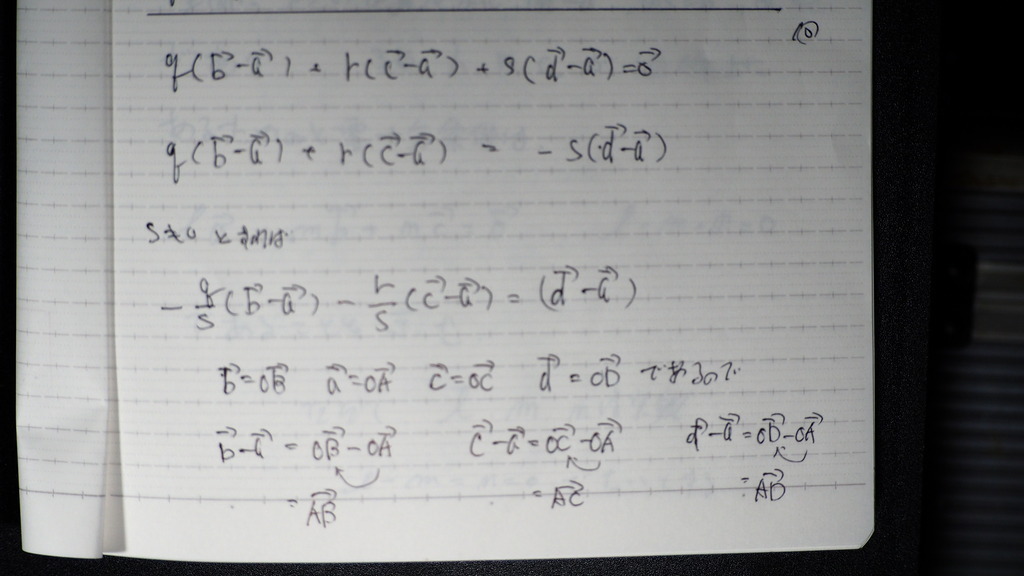 (6)
q(b⃗-a⃗) + r(c⃗-a⃗) + s(d⃗-a⃗)=0⃗
q(b⃗-a⃗) + r(c⃗-a⃗) = - s(d⃗-a⃗)
s≠0 と
- q/s (b⃗-a⃗) - r/s (c⃗-a⃗) = (d⃗-a⃗)
b⃗=OB⃗ a⃗=OA⃗ c⃗=OC⃗ d⃗=OD⃗ であるので
b⃗-a⃗ = OB⃗-OA⃗ c⃗-a⃗=OC⃗-OA⃗ d⃗-a⃗=OD⃗-OA⃗
=AB⃗ =AC⃗ =AD⃗